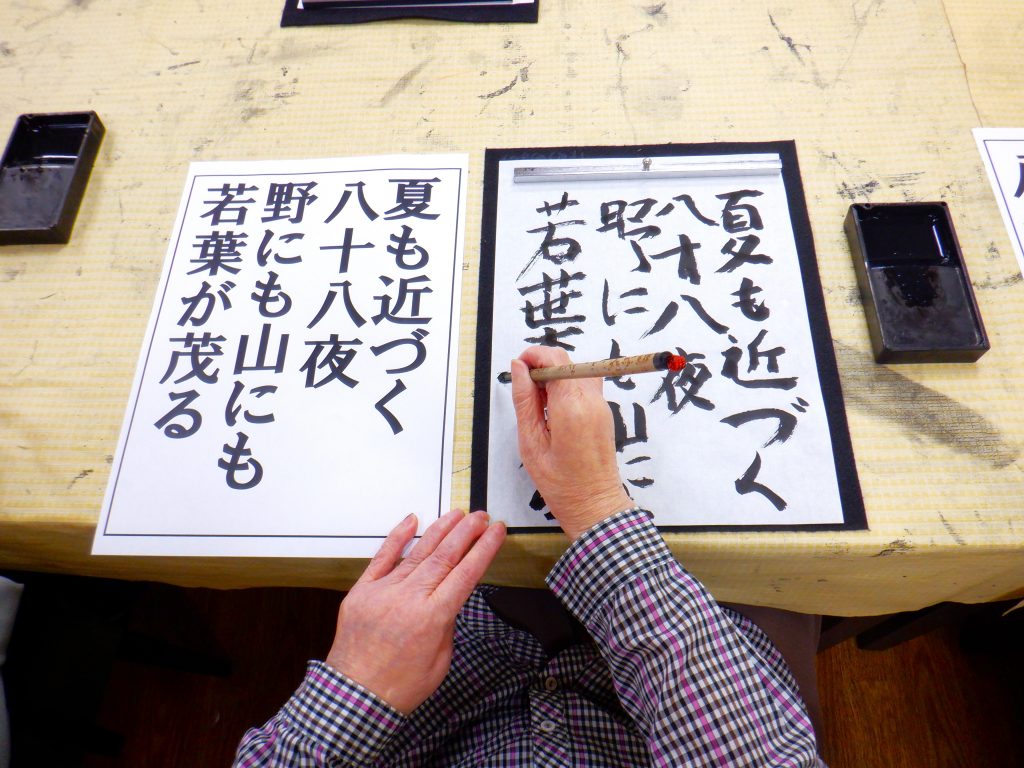 夏も近づく
八十八夜
野にも山にも
若葉が茂る
夏も近づく
八十八夜
野にも山に
若葉